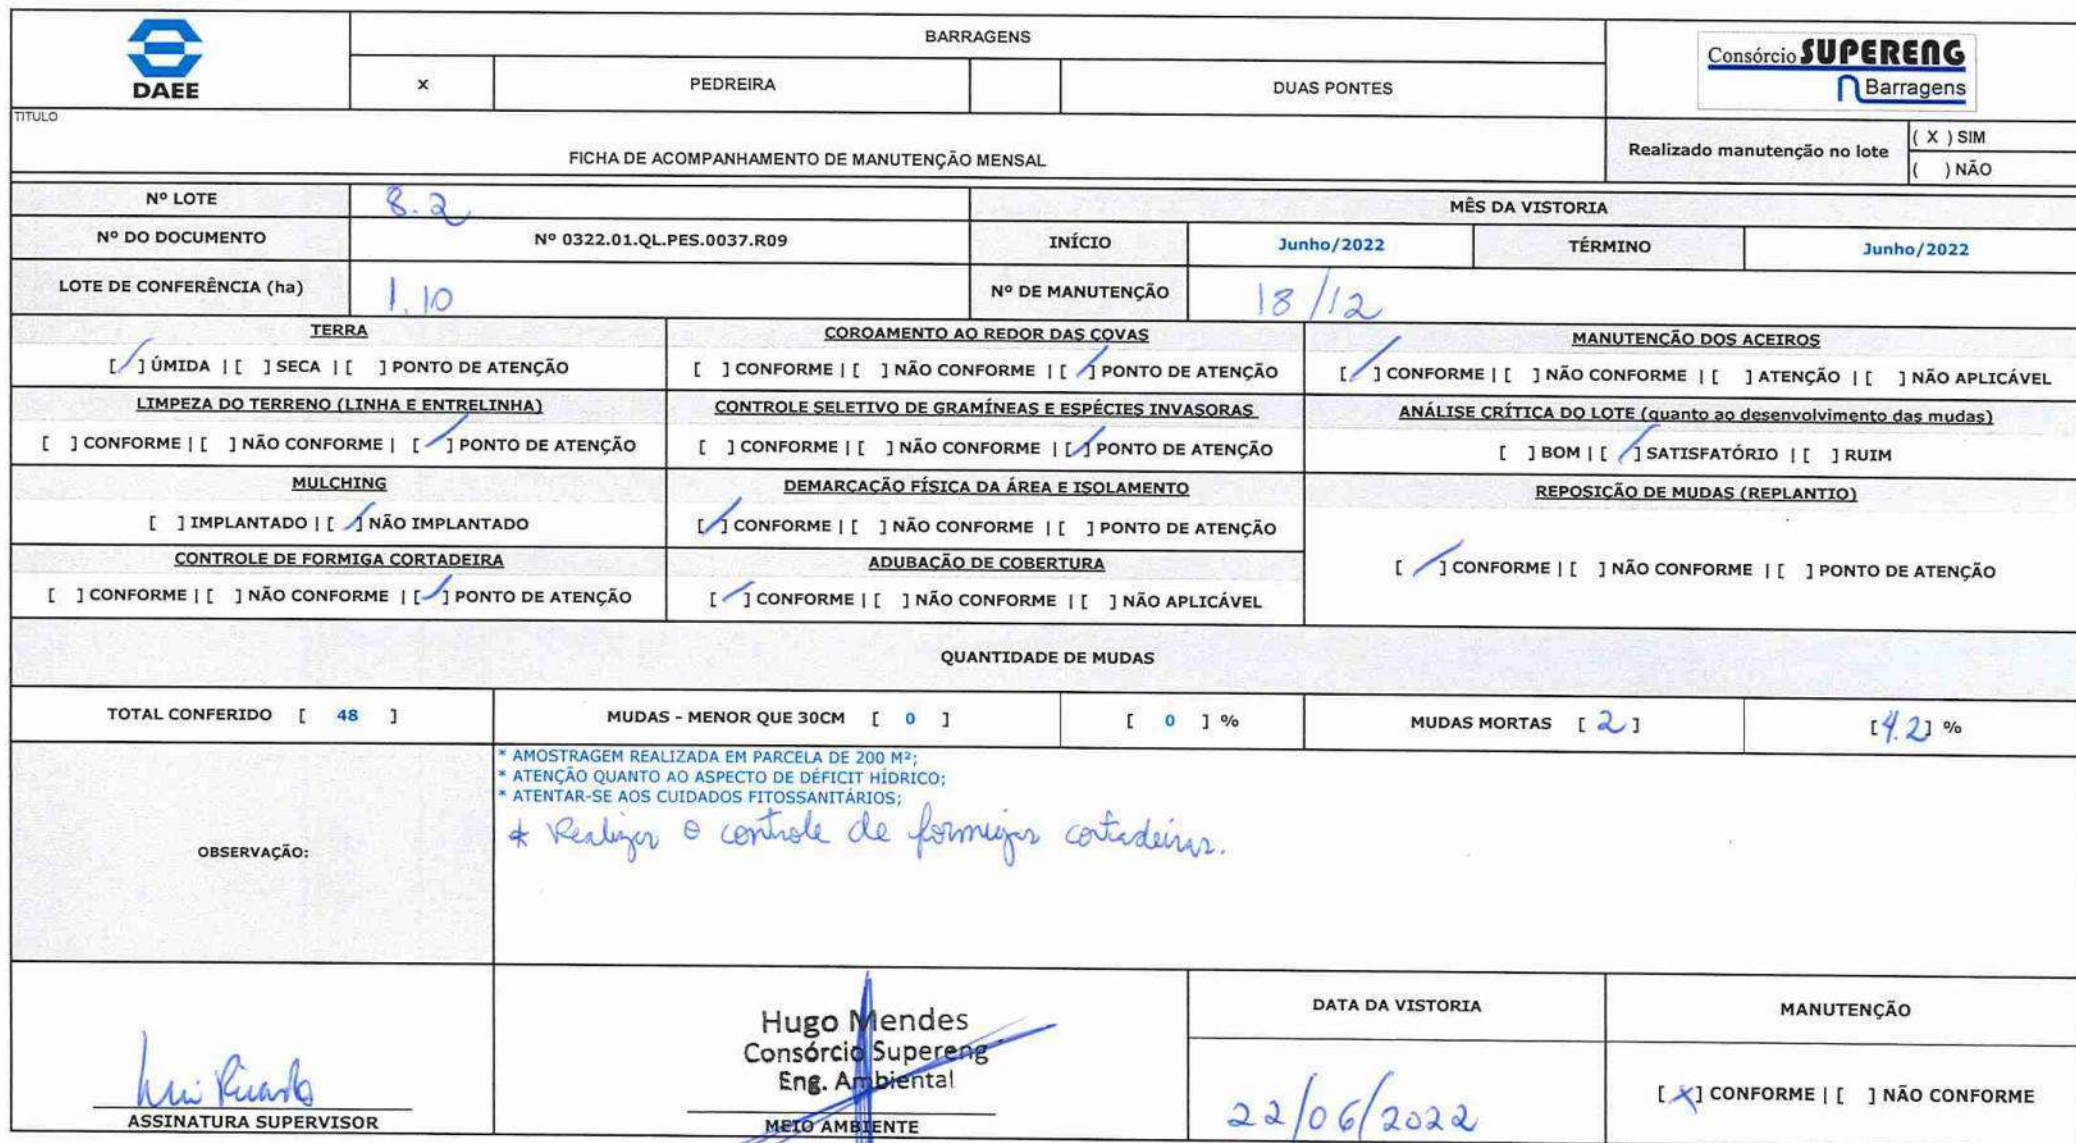 DAEE
BARRAGENS
X PEDREIRA DUAS PONTES
Consórcio SUPERENG
Barragens
TITULO
FICHA DE ACOMPANHAMENTO DE MANUTENÇÃO MENSAL
Realizado manutenção no lote
( X ) SIM
( ) NÃO
Nº LOTE 8.2
MÊS DA VISTORIA
Nº DO DOCUMENTO Nº 0322.01.QL.PES.0037.R09 INÍCIO Junho/2022 TÉRMINO Junho/2022
LOTE DE CONFERÊNCIA (ha) 1.10 Nº DE MANUTENÇÃO 18/12
TERRA
[/] ÚMIDA | [ ] SECA | [ ] PONTO DE ATENÇÃO
COROAMENTO AO REDOR DAS COVAS
[ ] CONFORME | [ ] NÃO CONFORME | [/] PONTO DE ATENÇÃO
MANUTENÇÃO DOS ACEIROS
[/] CONFORME | [ ] NÃO CONFORME | [ ] ATENÇÃO | [ ] NÃO APLICÁVEL
LIMPEZA DO TERRENO (LINHA E ENTRELINHA)
[ ] CONFORME | [ ] NÃO CONFORME | [/] PONTO DE ATENÇÃO
CONTROLE SELETIVO DE GRAMÍNEAS E ESPÉCIES INVASORAS
[ ] CONFORME | [ ] NÃO CONFORME | [/] PONTO DE ATENÇÃO
ANÁLISE CRÍTICA DO LOTE (quanto ao desenvolvimento das mudas)
[ ] BOM | [/] SATISFATÓRIO | [ ] RUIM
MULCHING
[ ] IMPLANTADO | [/] NÃO IMPLANTADO
DEMARCAÇÃO FÍSICA DA ÁREA E ISOLAMENTO
[/] CONFORME | [ ] NÃO CONFORME | [ ] PONTO DE ATENÇÃO
REPOSIÇÃO DE MUDAS (REPLANTIO)
[/] CONFORME | [ ] NÃO CONFORME | [ ] PONTO DE ATENÇÃO
CONTROLE DE FORMIGA CORTADEIRA
[ ] CONFORME | [ ] NÃO CONFORME | [/] PONTO DE ATENÇÃO
ADUBAÇÃO DE COBERTURA
[/] CONFORME | [ ] NÃO CONFORME | [ ] NÃO APLICÁVEL
QUANTIDADE DE MUDAS
TOTAL CONFERIDO [ 48 ] MUDAS - MENOR QUE 30CM [ 0 ] [ 0 ] % MUDAS MORTAS [ 2 ] [4.2] %
OBSERVAÇÃO:
* AMOSTRAGEM REALIZADA EM PARCELA DE 200 M²;
* ATENÇÃO QUANTO AO ASPECTO DE DÉFICIT HÍDRICO;
* ATENTAR-SE AOS CUIDADOS FITOSSANITÁRIOS;
* Realizar o controle de formigas cortadeiras.
Luis Ricardo
ASSINATURA SUPERVISOR
Hugo Mendes
Consórcio Supereng
Eng. Ambiental
MEIO AMBIENTE
DATA DA VISTORIA
22/06/2022
MANUTENÇÃO
[X] CONFORME | [ ] NÃO CONFORME